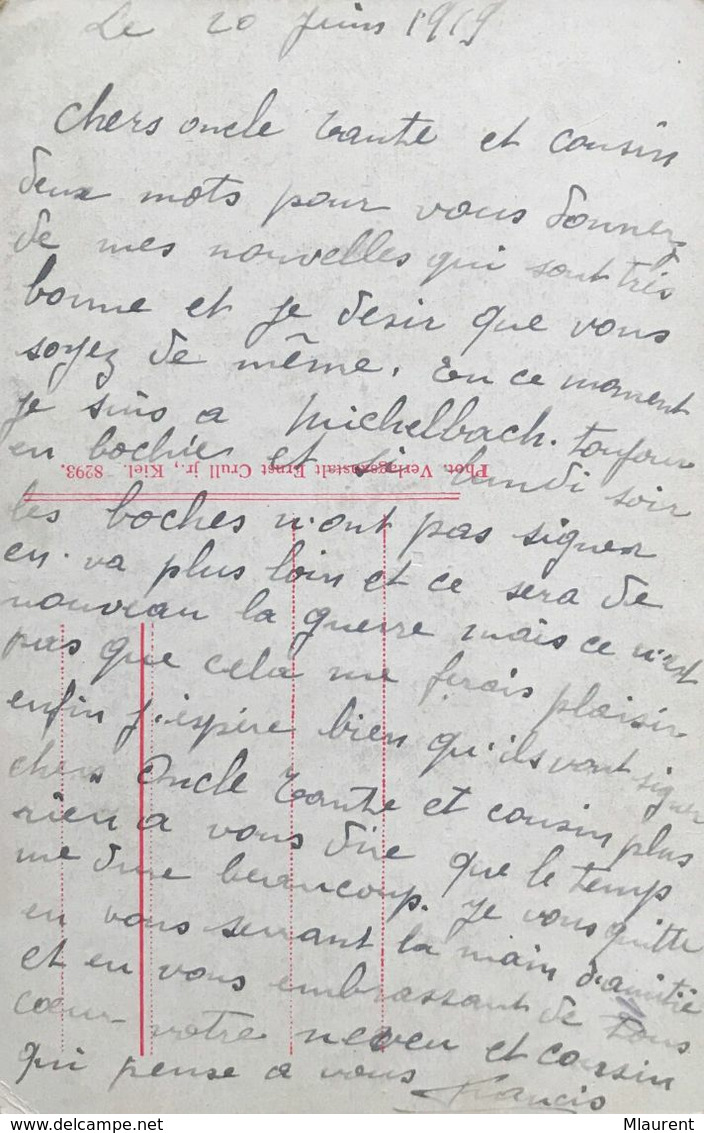 Le 20 Juin 1919
Chers oncle tante et cousin
deux mots pour vous donnez
de mes nouvelles qui sont très
bonne et je desir que vous
soyez de même. En ce moment
je suis a Michelbach. toujours
en bochie et si lundi soir
Phot. Verlagsanstalt Ernst Crull jr., Kiel. 8293.
les boches n'ont pas signer
en va plus loin et ce sera de
nouveau la guerre mais ce n'est
pas que cela me ferais plaisir
enfin j'espère bien qu'ils vont signer
chers Oncle tante et cousin plus
rien a vous dire que le temp
me dure beaucoup. Je vous quitte
en vous serrant la main d'amitié
et en vous embrassant de tous
cœur votre neveu et cousin
qui pense a vous Francis
delcampe.net
Mlaurent